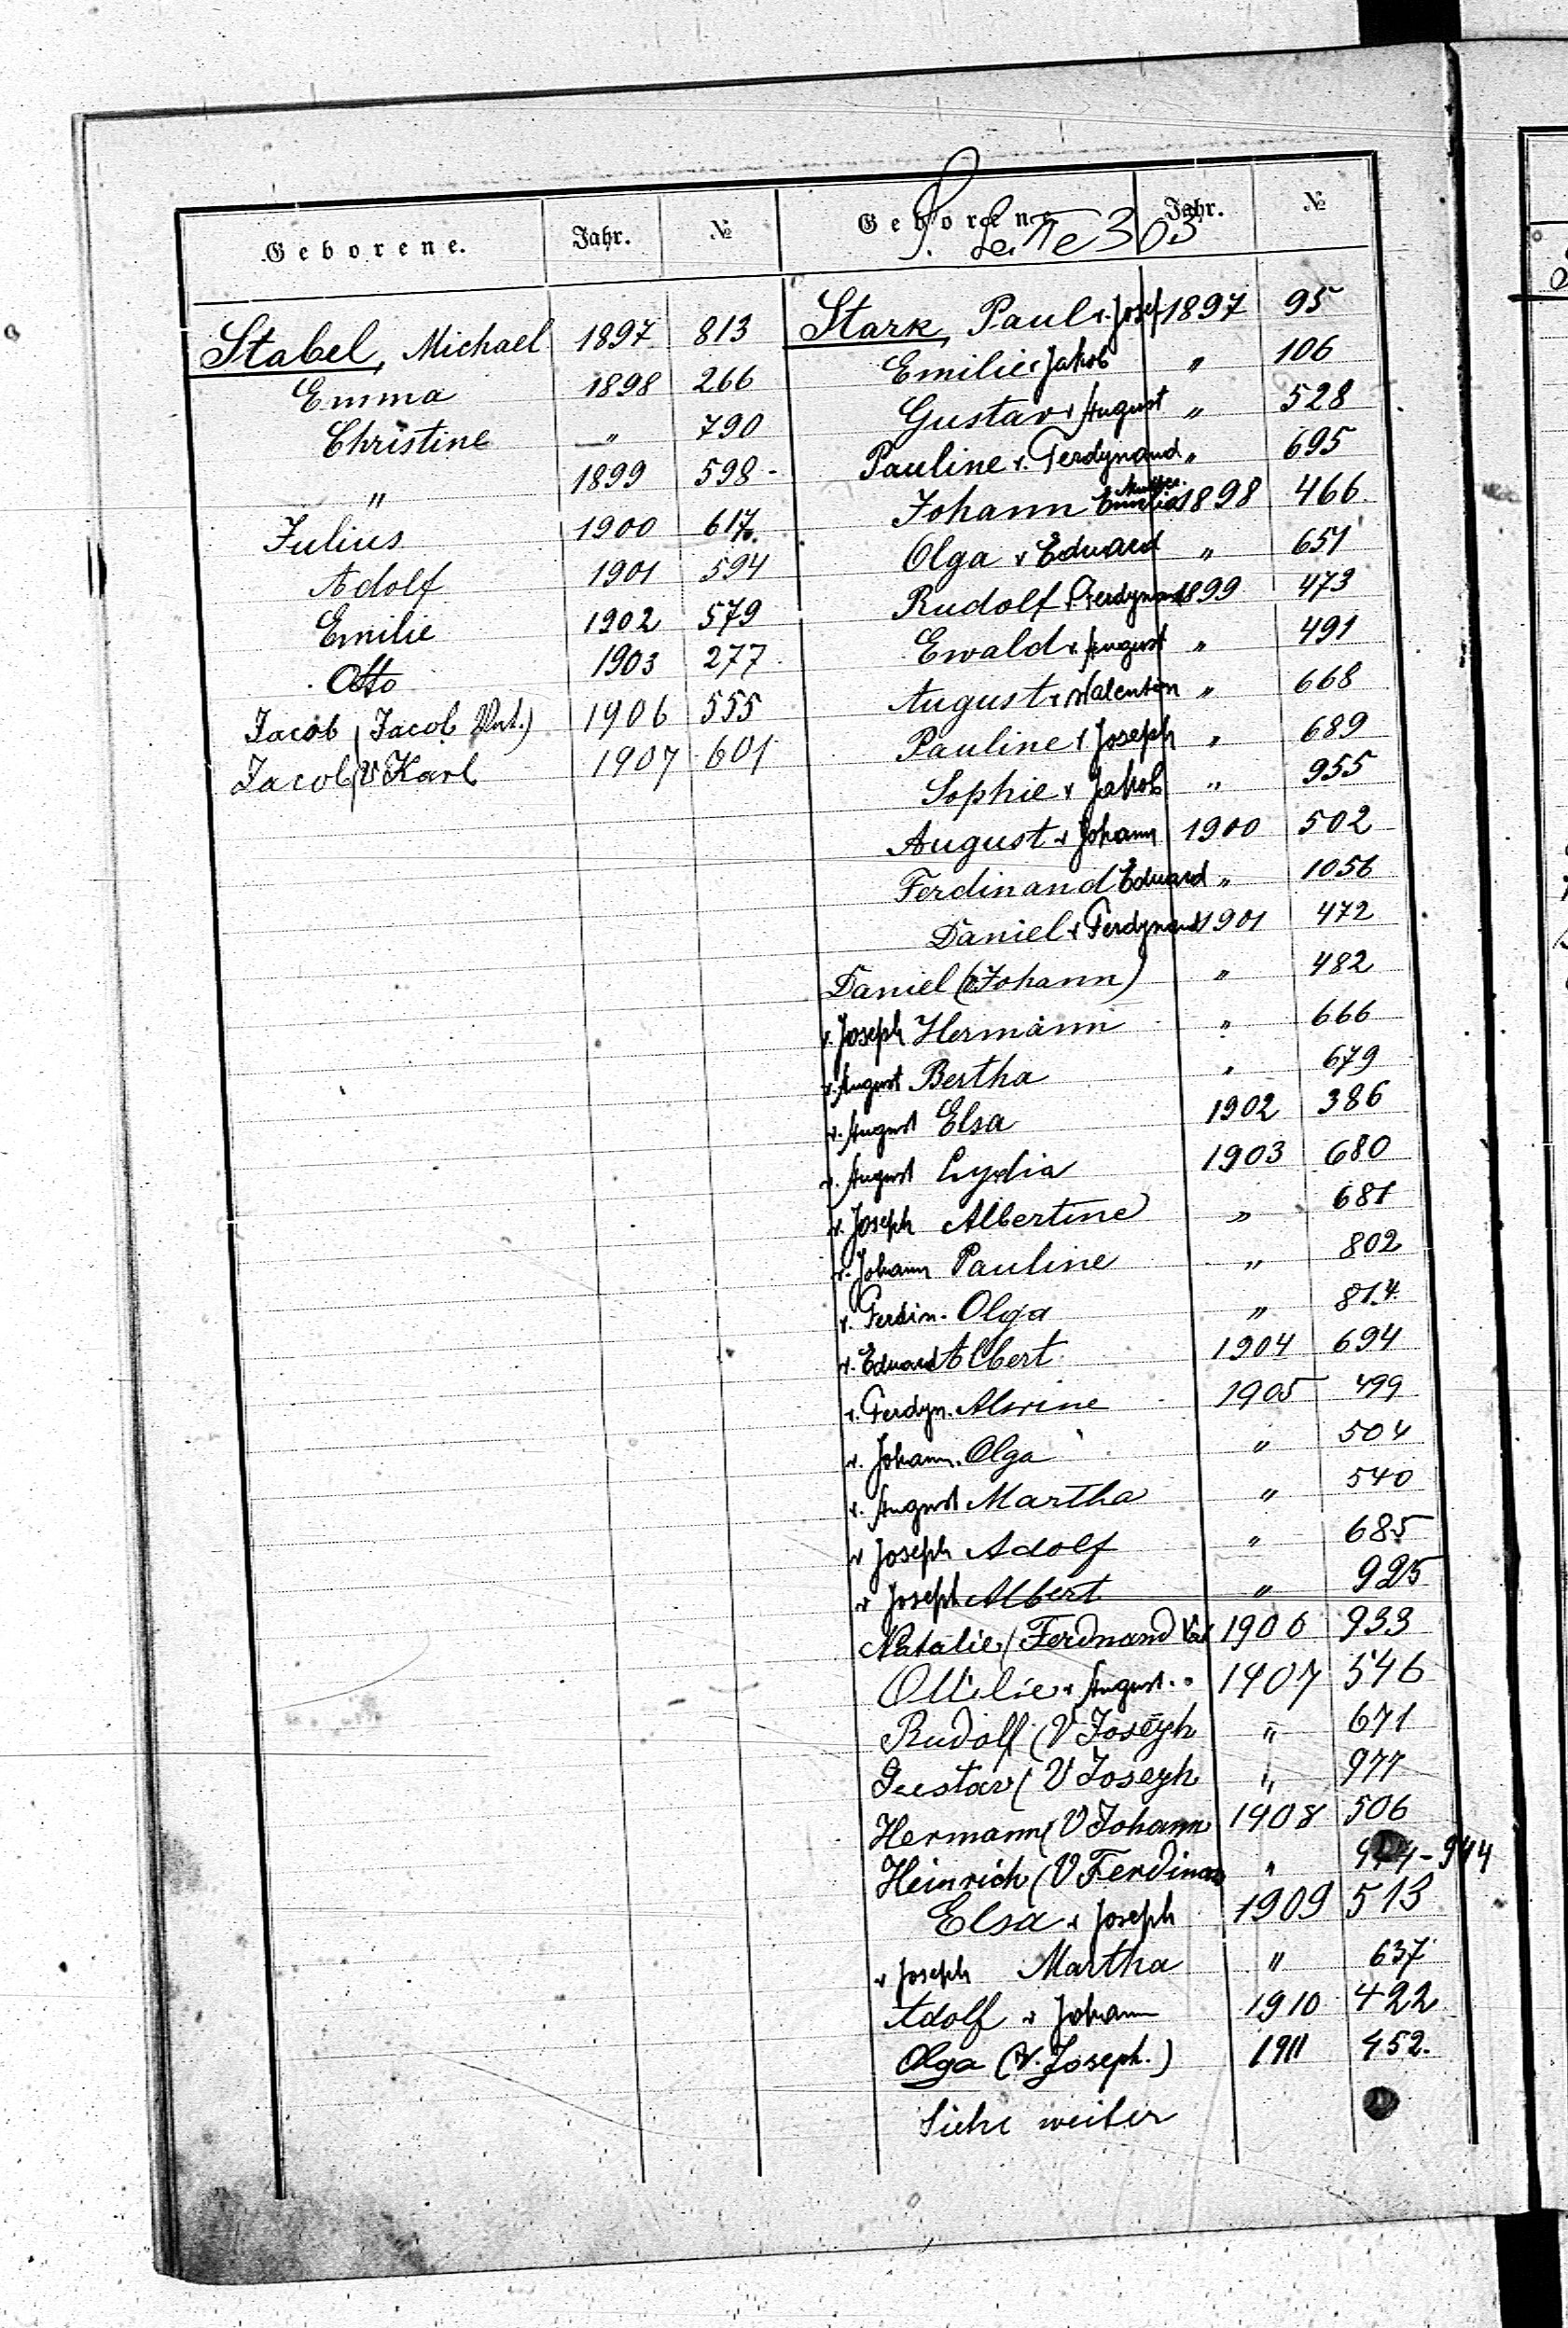 Geborene. Jahr. №
Stabel, Michael 1897 813
Emma 1898 266
Christine " 790
" 1899 598
Julius 1900 617
Adolf 1901 594
Emilie 1902 579
Otto 1903 277
Jacob (Jacob Vat.) 1906 555
Jacob (V Karl 1907 601
S. Seite 303
Geborene Jahr. №
Stark, Paul v. Josef 1897 95
Emilie v Jakob " 106
Gustav v August " 528
Pauline v. Ferdynand " 695
Johann Mutter Emilia 1898 466
Olga v Eduard " 651
Rudolf v Ferdynand 1899 473
Ewald v August " 491
August v Walenten " 668
Pauline v Joseph " 689
Sophie v Jakob " 955
August v Johann 1900 502
Ferdinand Eduard " 1056
Daniel v Ferdynand 1901 472
Daniel (Johann) " 482
v. Joseph Hermann " 666
v. August Bertha " 679
v. August Elsa 1902 386
v. August Lydia 1903 680
v. Joseph Albertine " 681
v. Johann Pauline " 802
v. Ferdin. Olga " 814
v. Eduard Albert 1904 694
v. Ferdyn. Alwine 1905 499
v. Johann. Olga " 504
v. August Martha " 540
v Joseph Adolf " 685
v Joseph Albert " 925
Natalie (Ferdnand Vat 1906 933
Ottilie v August. 1907 546
Rudolf (V Joseph " 671
Gustav (V Joseph " 977
Hermann (V Johann 1908 506
Heinrich (V Ferdinan " 944
Elsa v Joseph 1909 513
v Joseph Martha " 637
Adolf v Johann 1910 422
Olga (V. Joseph.) 1911 452.
Siehe weiter